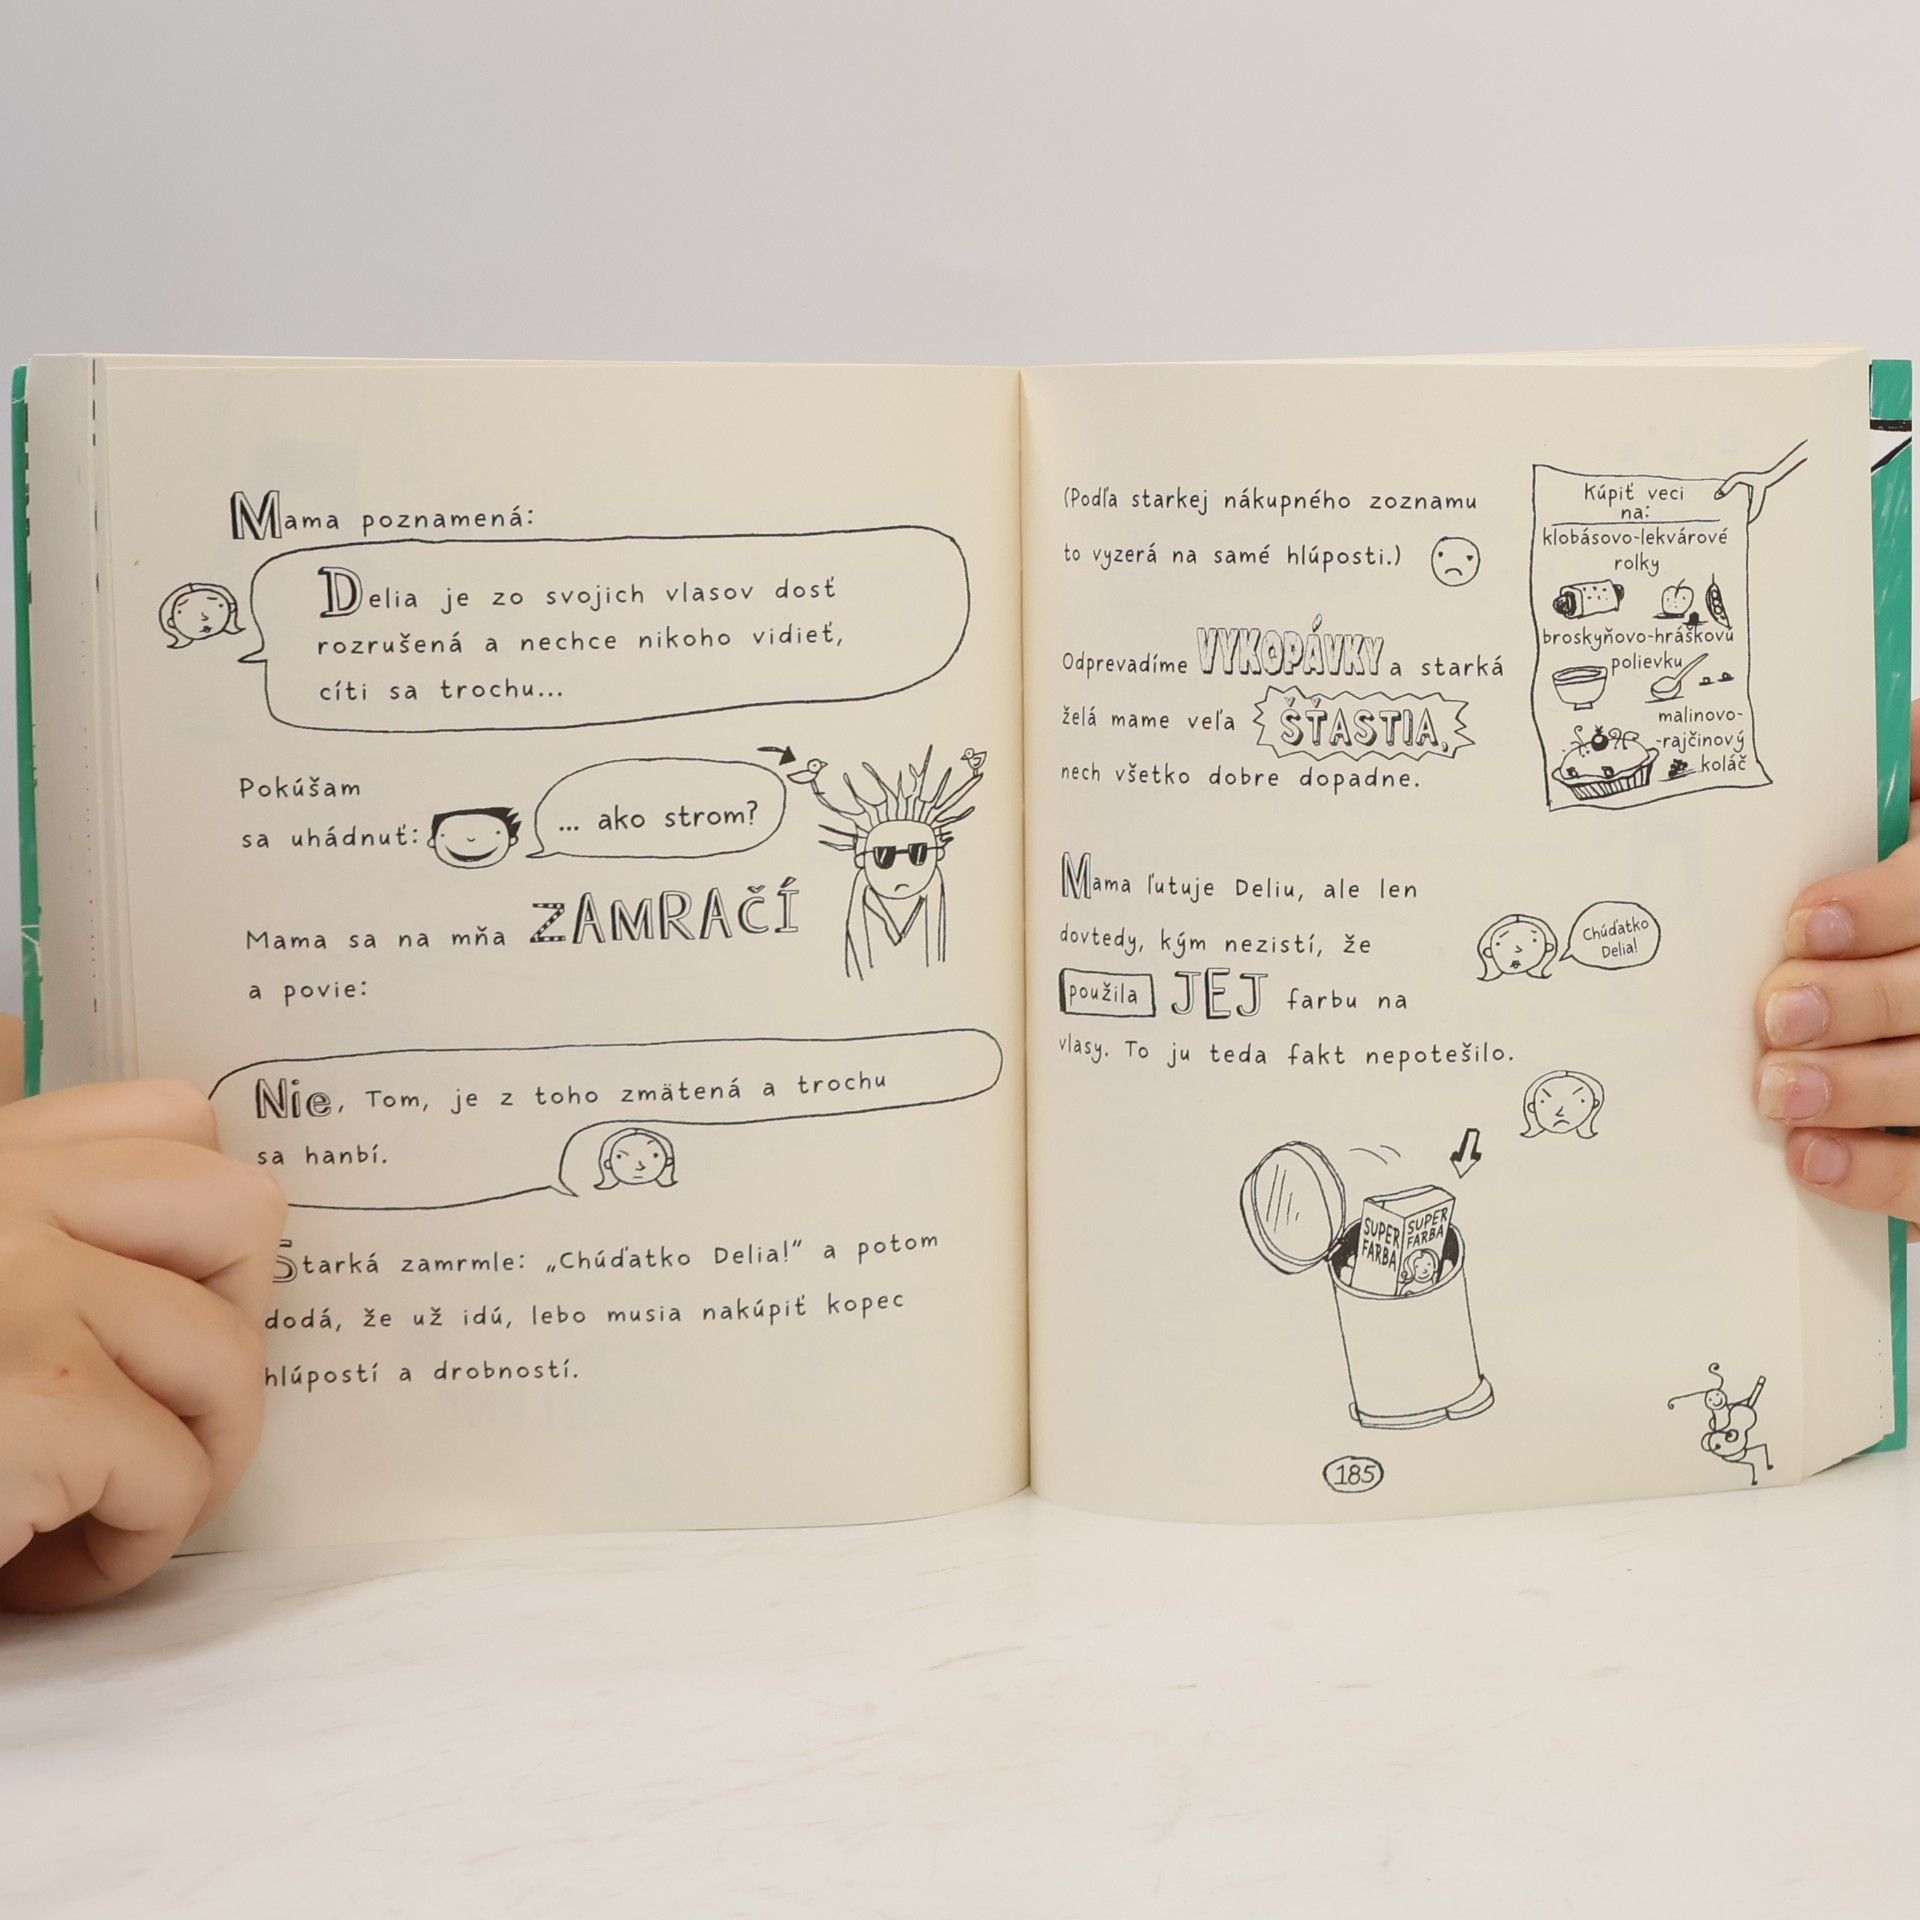 Mama poznamená:
Delia je zo svojich vlasov dosť
rozrušená a nechce nikoho vidieť,
cíti sa trochu...
Pokúšam
sa uhádnuť:
... ako strom?
Mama sa na mňa ZAMRAČÍ
a povie:
Nie, Tom, je z toho zmätená a trochu
sa hanbí.
Starká zamrmle: „Chúďatko Delia!“ a potom
dodá, že už idú, lebo musia nakúpiť kopec
hlúpostí a drobností.
(Podľa starkej nákupného zoznamu
to vyzerá na samé hlúposti.)
Kúpiť veci
na:
klobásovo-lekvárové
rolky
broskyňovo-hráškovú
polievku
malinovo-
-rajčinový
koláč
Odprevadíme VYKOPÁVKY a starká
želá mame veľa ŠŤASTIA,
nech všetko dobre dopadne.
Mama ľutuje Deliu, ale len
dovtedy, kým nezistí, že
použila JEJ farbu na
vlasy. To ju teda fakt nepotešilo.
Chúďatko
Delia!
SUPER
FARBA
SUPER
FARBA
185